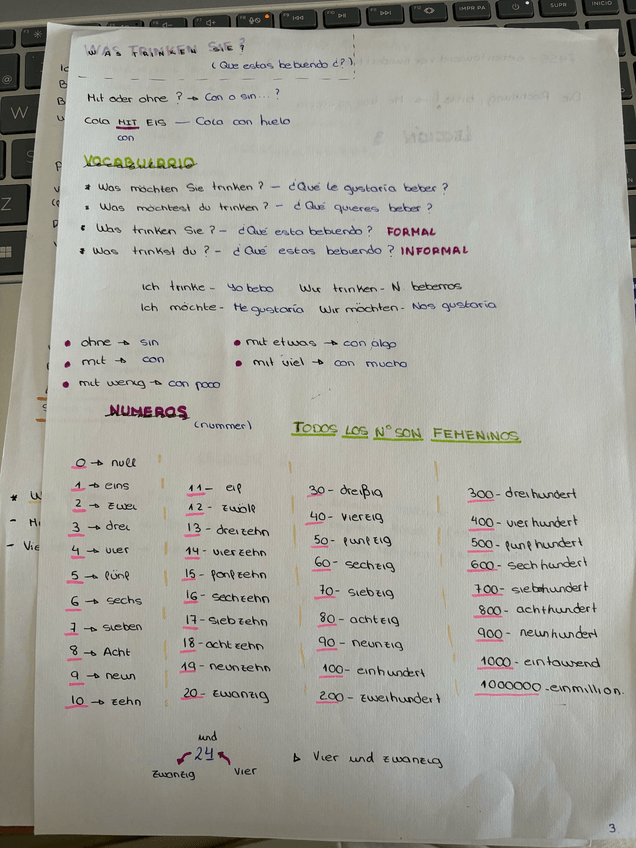 WAS TRINKEN SIE?
(Que estas bebiendo ¿?)
Mit oder ohne? → Con o sin...?
Cola MIT EIS — Cola con hielo
con
VOCABULARIO
* Was möchten Sie trinken? - ¿Qué le gustaria beber?
* Was möchtest du trinken? - ¿Qué quieres beber?
* Was trinken Sie? - ¿Qué esta bebiendo? FORMAL
* Was trinkst du? - ¿Qué estas bebiendo? INFORMAL
Ich trinke - Yo bebo Wir trinken - N beberros
Ich möchte - Me gustaria Wir möchten - Nos gustaria
• ohne → sin • mit etwas → con algo
• mit → con • mit viel → con mucho
• mit wenig → con poco
NUMEROS
(nummer)
TODOS LOS Nº SON FEMENINOS
0 → null
1 → eins
2 → zwei
3 → drei
4 → vier
5 → fünf
6 → sechs
7 → sieben
8 → Acht
9 → neun
10 → zehn
11 - elf
12 - zwölf
13 - dreizehn
14 - vierzehn
15 - fonfzehn
16 - sechzehn
17 - siebzehn
18 - achtzehn
19 - neunzehn
20 - zwanzig
30 - dreißig
40 - vierzig
50 - funfzig
60 - sechzig
70 - siebzig
80 - achtzig
90 - neunzig
100 - einhundert
200 - zweihundert
300 - dreihundert
400 - vierhundert
500 - funfhundert
600 - sechhundert
700 - siebhundert
800 - achthundert
900 - neunhundert
1000 - eintausend
1000000 - einmillion.
und
24
zwanzig vier
▷ Vier und zwanzig
3